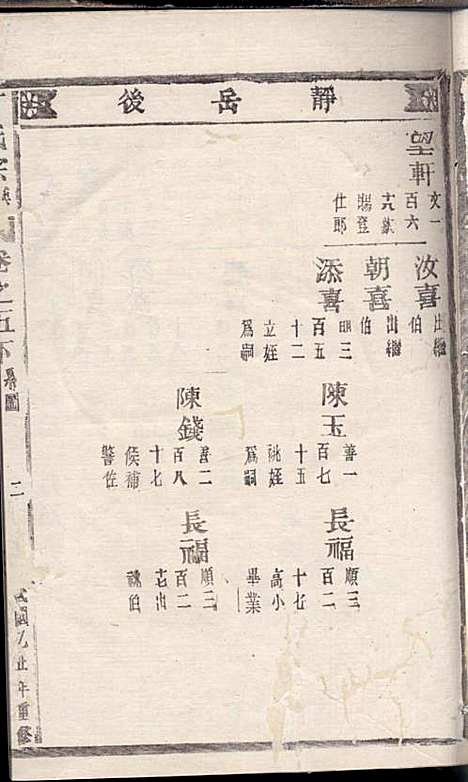 靜岳後
望軒
文一
百六
六欽
賜登
仕郎
汝喜
出繼
伯
朝喜
出繼
伯
添喜
明三
百五
十二
立姪
爲嗣
陳玉
善一
百七
十五
祧姪
爲嗣
陳錢
善二
百八
十七
候補
警佐
長福
順三
百二
十七
高小
畢業
長福
順三
百二
十七出
祧伯
卷之五下
系圖
二
民國乙丑年重修